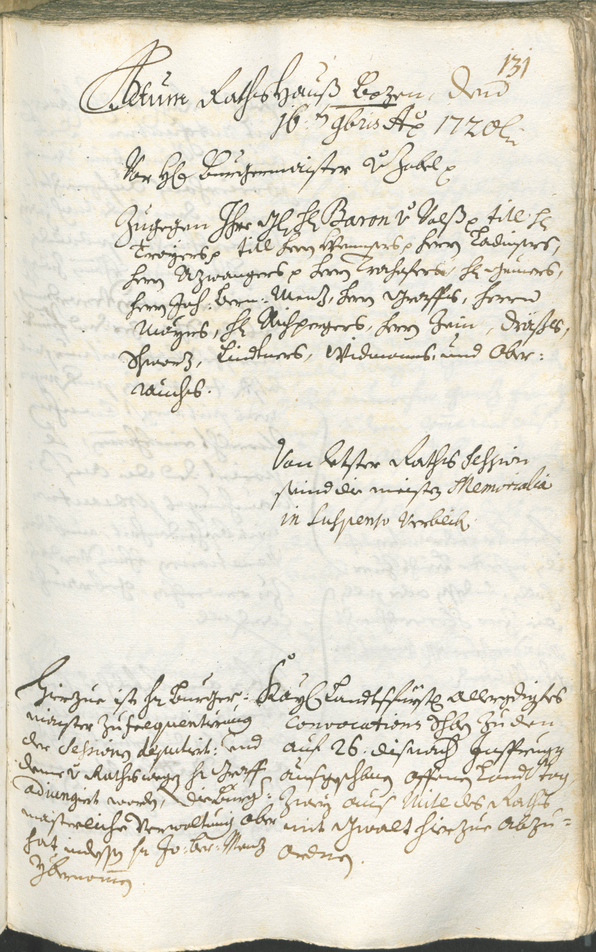 131
Actum Rathshauß Bozen, den
16. 9bris Ao 1720
Vor H: Burgermaister v Zobel
Zugegen Ihr H: H: Baron v Völß p. titl H:
Troyers p. titl herr herr Ladinsers,
herr Azwangers p. herr H:
herr Joh: Bern: Menz, herr Graffs, herrn
Mayrs, H: Aichpergers, herr Zein,
Schwarz, Lindtners, Widmanns, und Ober:
rauchs.
Von letster Raths Session
seind die meisten Memorialia
in Suspenso verblibn.
Hierzue ist H: Burger:
maister zu frequentierung
der Session deputirt: und
deme v Rathswegen H: Graff
adjungirt worden, die Burger:
maisterliche Verwaltung aber
hat indessen H: Jo: Ber: Menz
ybernomen
Kayl: Landtsfürstl: allergdigstes
Convocations Schreiben zu den
auf 26: dis nach
ausgeschribnen offnen Landtag
Zween aus Mitl des Raths
mit Gwalt hierzue abzu=
ordnen